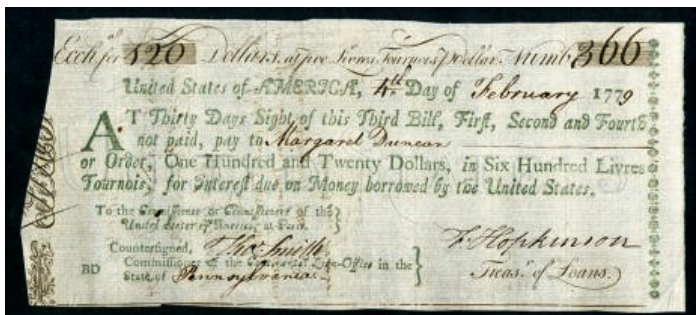 Exchᵃ for 120 Dollars, at five Livres Tournois ⅌ Dollar. Numb. 366
United States of AMERICA, 4th Day of February 1779
AT Thirty Days Sight of this Third Bill, First, Second and Fourth
not paid, pay to Margaret Duncan
or Order, One Hundred and Twenty Dollars, in Six Hundred Livres
Tournois, for Interest due on Money borrowed by the United States.
To the Commissioner or Commissioners of the
United States of America, at Paris.
Countersigned, Thos. Smith
Commissioner of the Continental Loan-Office in the
BD State of Pennsylvania
F. Hopkinson
Treasr. of Loans.